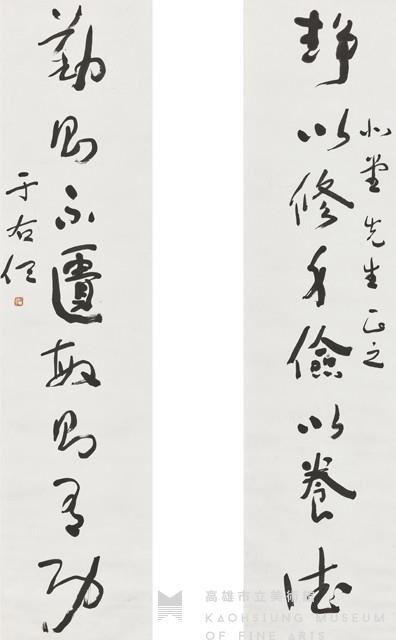 靜以修身儉以養德
堂先生正之
勤則不匱敏則有功
于右任
高雄市立美術館
KAOHSIUNG MUSEUM
OF FINE ARTS